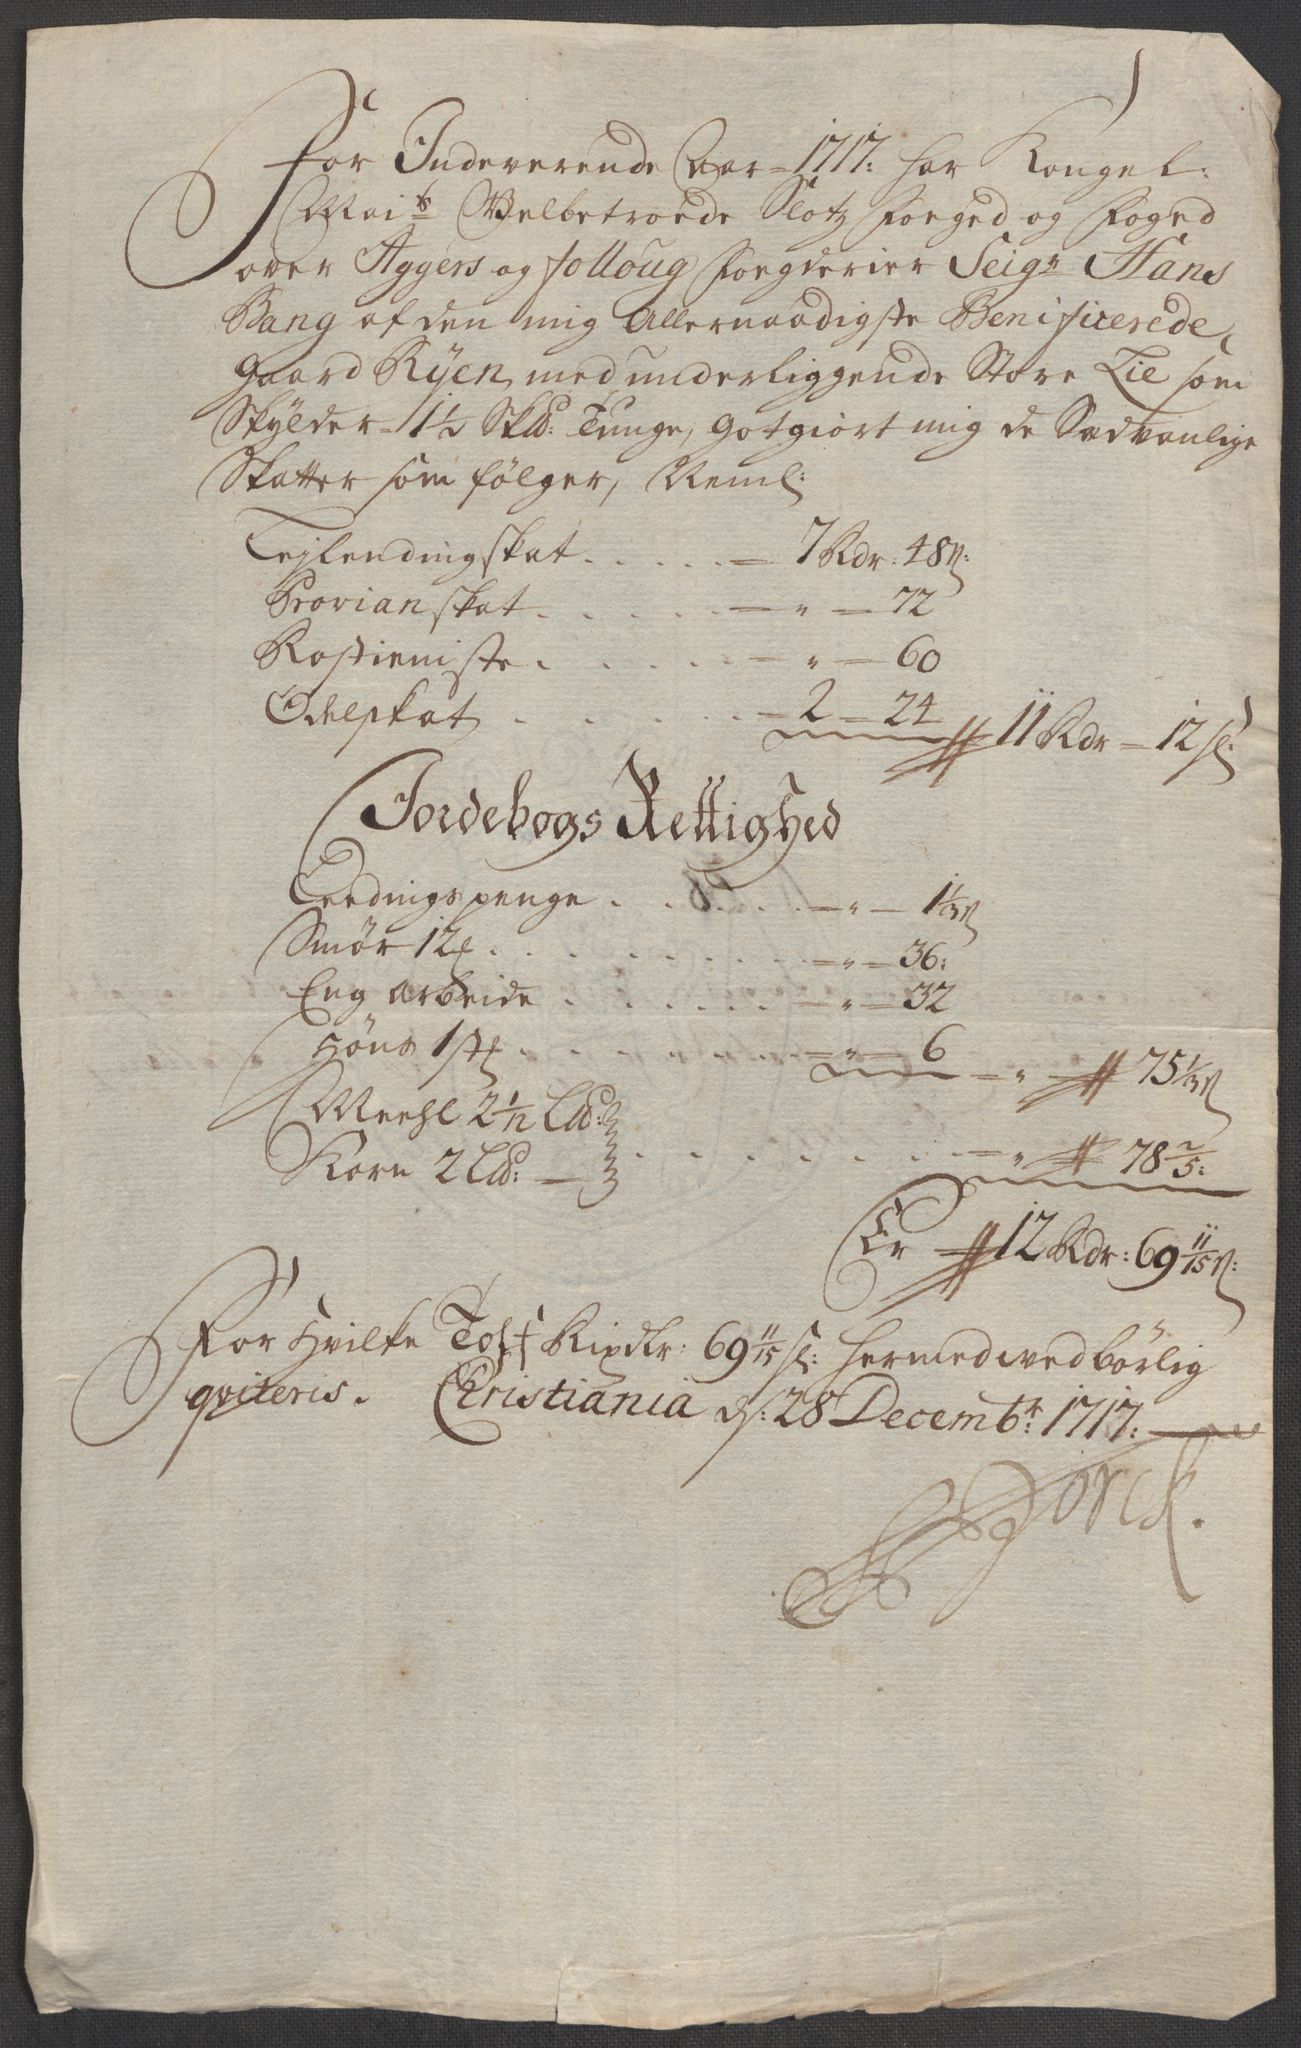 For Indeverende Aar 1717: har Kongel:
Mai:ts Velbetroede Slotz Foeged og Foged
over Aggers og folloug Foegderier Seigr Hans
Bang af den mig Allernaadigste Benificerede
gaard Ryen med underliggende Store Lie som
Skylder 1½ Skld: Tunge, Gotgiort mig de Sædvanlige
Skatter som følger, Neml:
Lejlendingskat . . . . . 7 Rdr: 48 s:
Provianskat . . . . „ 72
Rostieniste . . . . „ 60
Odelskat . . . . 2 24 11 Rdr 12 s:
Jordebogs Rettighed
Leedingspenge . . . . „ 1⅓ s
Smør 12 . . . . „ 36:
Eng Arbeide . . . . „ 32
Høns 1 st . . . . „ 6 „ 75⅓ s
Meehl 2½ Lld:
Korn 2 Lld: . . . . „ 78 2/5:
Er 12 Rdr: 69 11/15 s:
For hvilke Tolf Rixdlr: 69 11/15 s: hermed ved børlig
qviteris. Christiania ds: 28 Decembr: 1717: